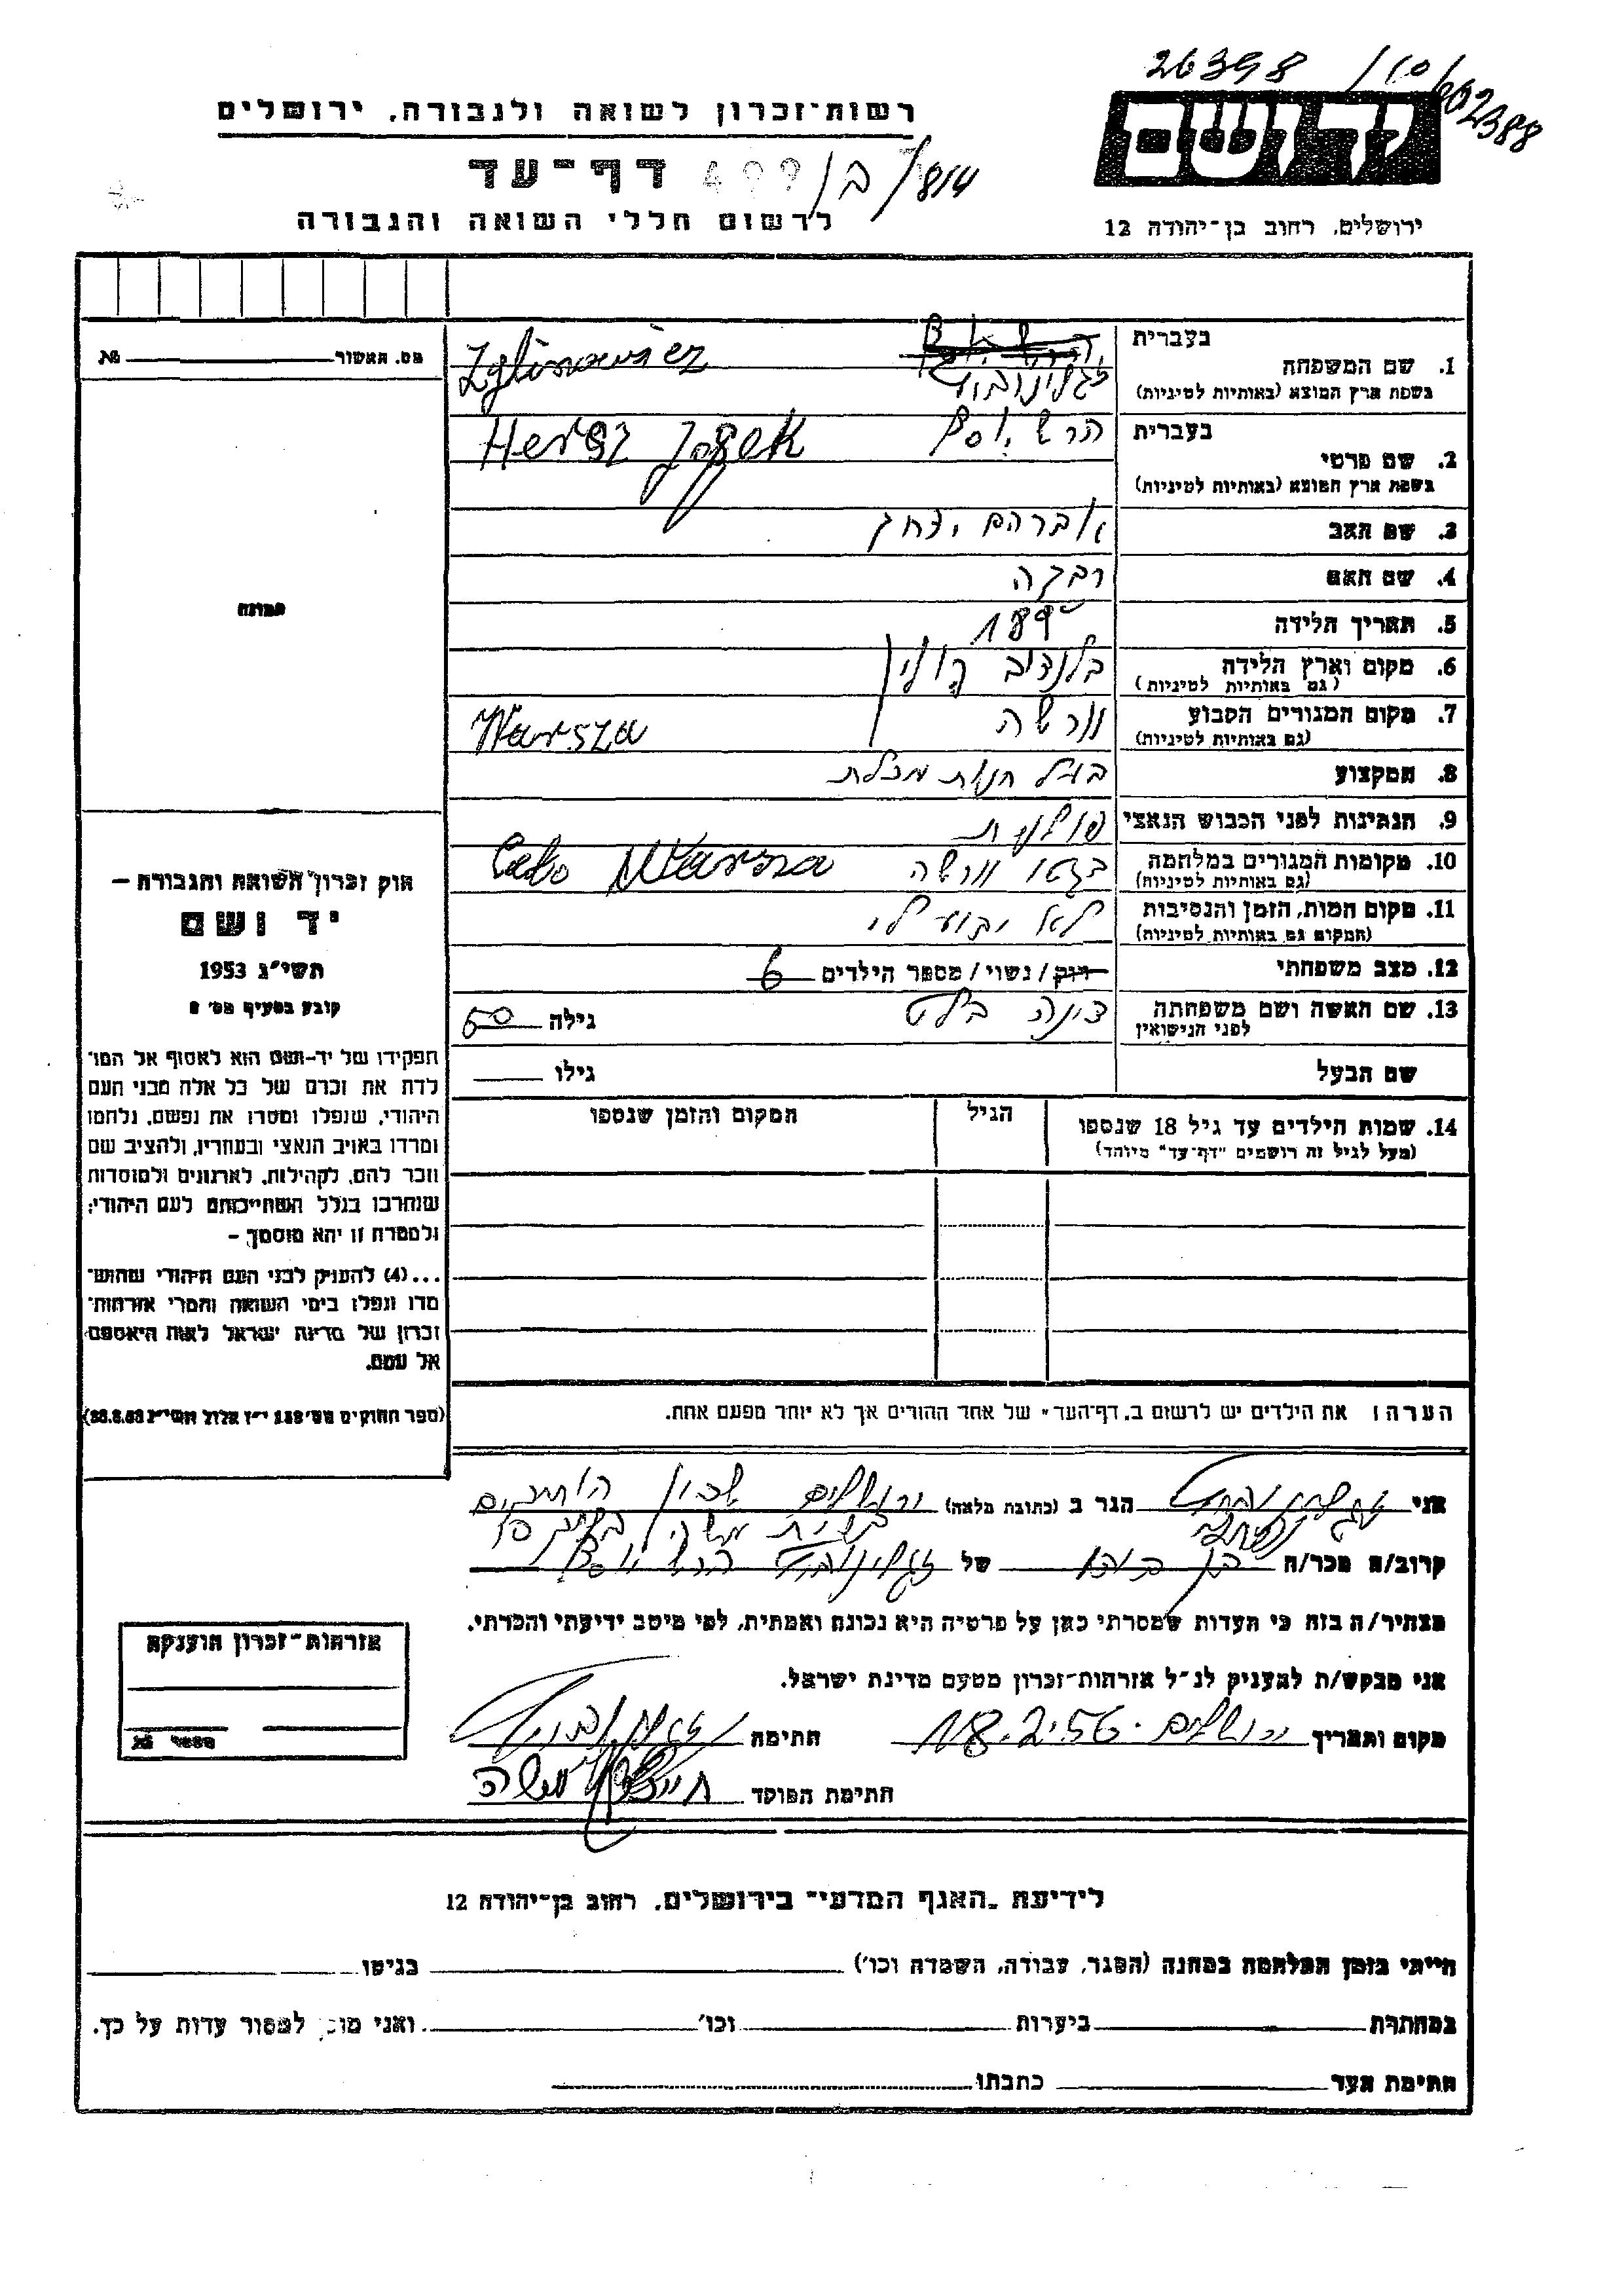 26398 /10/602388
רשות־זכרון לשואה ולגבורה, ירושלים
ידושם
דף־עד 499/ב/814
לרשום חללי השואה והגבורה
ירושלים, רחוב בן־יהודה 12
בעברית
1. שם המשפחה
בשפת ארץ המוצא (באותיות לטיניות)
זגלינוביץ Zglinowicz
מס. האשור №
בעברית
2. שם פרטי
בשפת ארץ המוצא (באותיות לטיניות)
הרש יוסף Hersz Josek
3. שם האב אברהם יצחק
4. שם האם רבקה
5. תאריך הלידה
6. מקום וארץ הלידה
(גם באותיות לטיניות)
פולין
7. מקום המגורים הקבוע
(גם באותיות לטיניות)
וורשה Warsza
8. המקצוע בעל חנות מכלת
9. הנתינות לפני הכבוש הנאצי פולנית
10. מקומות המגורים במלחמה
(גם באותיות לטיניות)
בגטו וורשה Warsza
11. מקום המות, הזמן והנסיבות
(המקום גם באותיות לטיניות)
לא ידוע לי
12. מצב משפחתי רווק/נשוי/מספר הילדים 6
13. שם האשה ושם משפחתה
לפני הנישואין
גילה 50
שם הבעל גילו
14. שמות הילדים עד גיל 18 שנספו
(מעל לגיל זה רושמים "דף־עד" מיוחד)
הגיל
המקום והזמן שנספו
תמונה
חוק זכרון השואה והגבורה —
יד ושם
תשי"ג 1953
קובע בסעיף מס' 2
תפקידו של יד־ושם הוא לאסוף אל המו־
לדת את זכרם של כל אלה מבני העם
היהודי, שנפלו ומסרו את נפשם, נלחמו
ומרדו באויב הנאצי ובעוזריו, ולהציב שם
וזכר להם, לקהילות, לארגונים ולמוסדות
שנחרבו בגלל השתייכותם לעם היהודי;
ולמטרה זו יהא מוסמך —
...(4) להעניק לבני העם היהודי שהוש־
מדו ונפלו בימי השואה והמרי אזרחות־
זכרון של מדינת ישראל לאות היאספם
אל עמם.
(ספר החוקים מס' 132 י"ז אלול תשי"ג 28.8.53)
הערה: את הילדים יש לרשום ב"דף־העד" של אחד ההורים אך לא יותר מפעם אחת.
אני הגר ב (כתובת מלאה) ירושלים שכון הותיקים
קרוב/ה מכר/ה של זגלינוביץ הרש יוסף
מצהיר/ה בזה כי העדות שמסרתי כאן על פרטיה היא נכונה ואמתית, לפי מיטב ידיעתי והכרתי.
אני מבקש/ת להעניק לנ"ל אזרחות־זכרון מטעם מדינת ישראל.
מקום ותאריך ירושלים 18.2.56 חתימה
חתימת הפוקד
אזרחות־זכרון הוענקה
מספר №
לידיעת "האגף המדעי" בירושלים, רחוב בן־יהודה 12
הייתי בזמן המלחמה במחנה (הסגר, עבודה, השמדה וכו') בגיטו
במחתרת ביערות וכו' ואני מוכן למסור עדות על כך.
חתימת העד כתבתו